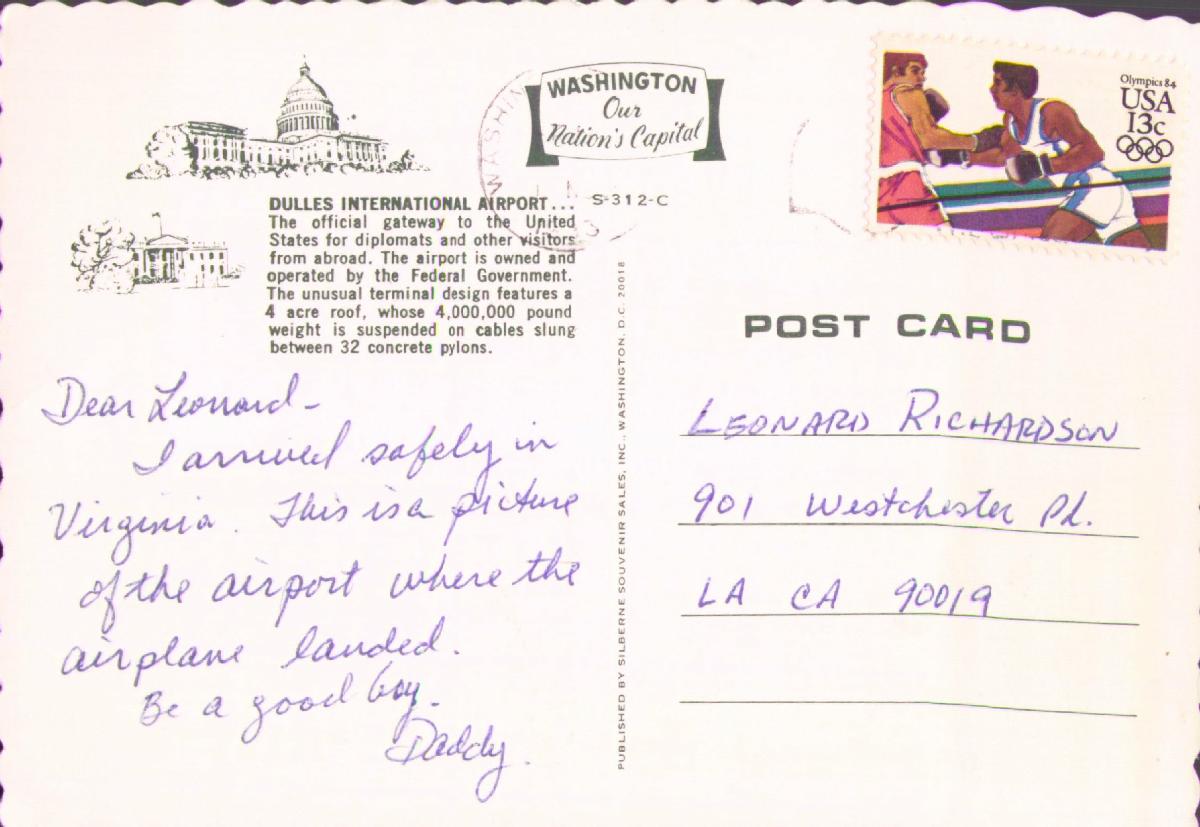 WASHINGTON
Our
Nation's Capital
S-312-C
WASHIN
Olympics 84
USA
13c
DULLES INTERNATIONAL AIRPORT...
The official gateway to the United
States for diplomats and other visitors
from abroad. The airport is owned and
operated by the Federal Government.
The unusual terminal design features a
4 acre roof, whose 4,000,000 pound
weight is suspended on cables slung
between 32 concrete pylons.
Dear Leonard-
I arrived safely in
Virginia. This is a picture
of the airport where the
airplane landed.
Be a good boy.
Daddy.
PUBLISHED BY SILBERNE SOUVENIR SALES, INC., WASHINGTON, D.C. 20018
POST CARD
LEONARD RICHARDSON
901 Westchester Pl.
LA CA 90019